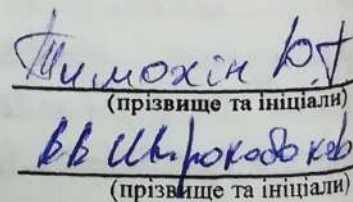 Тимохін Ю.А
(прізвище та ініціали)
ВВ Широкобоков
(прізвище та ініціали)